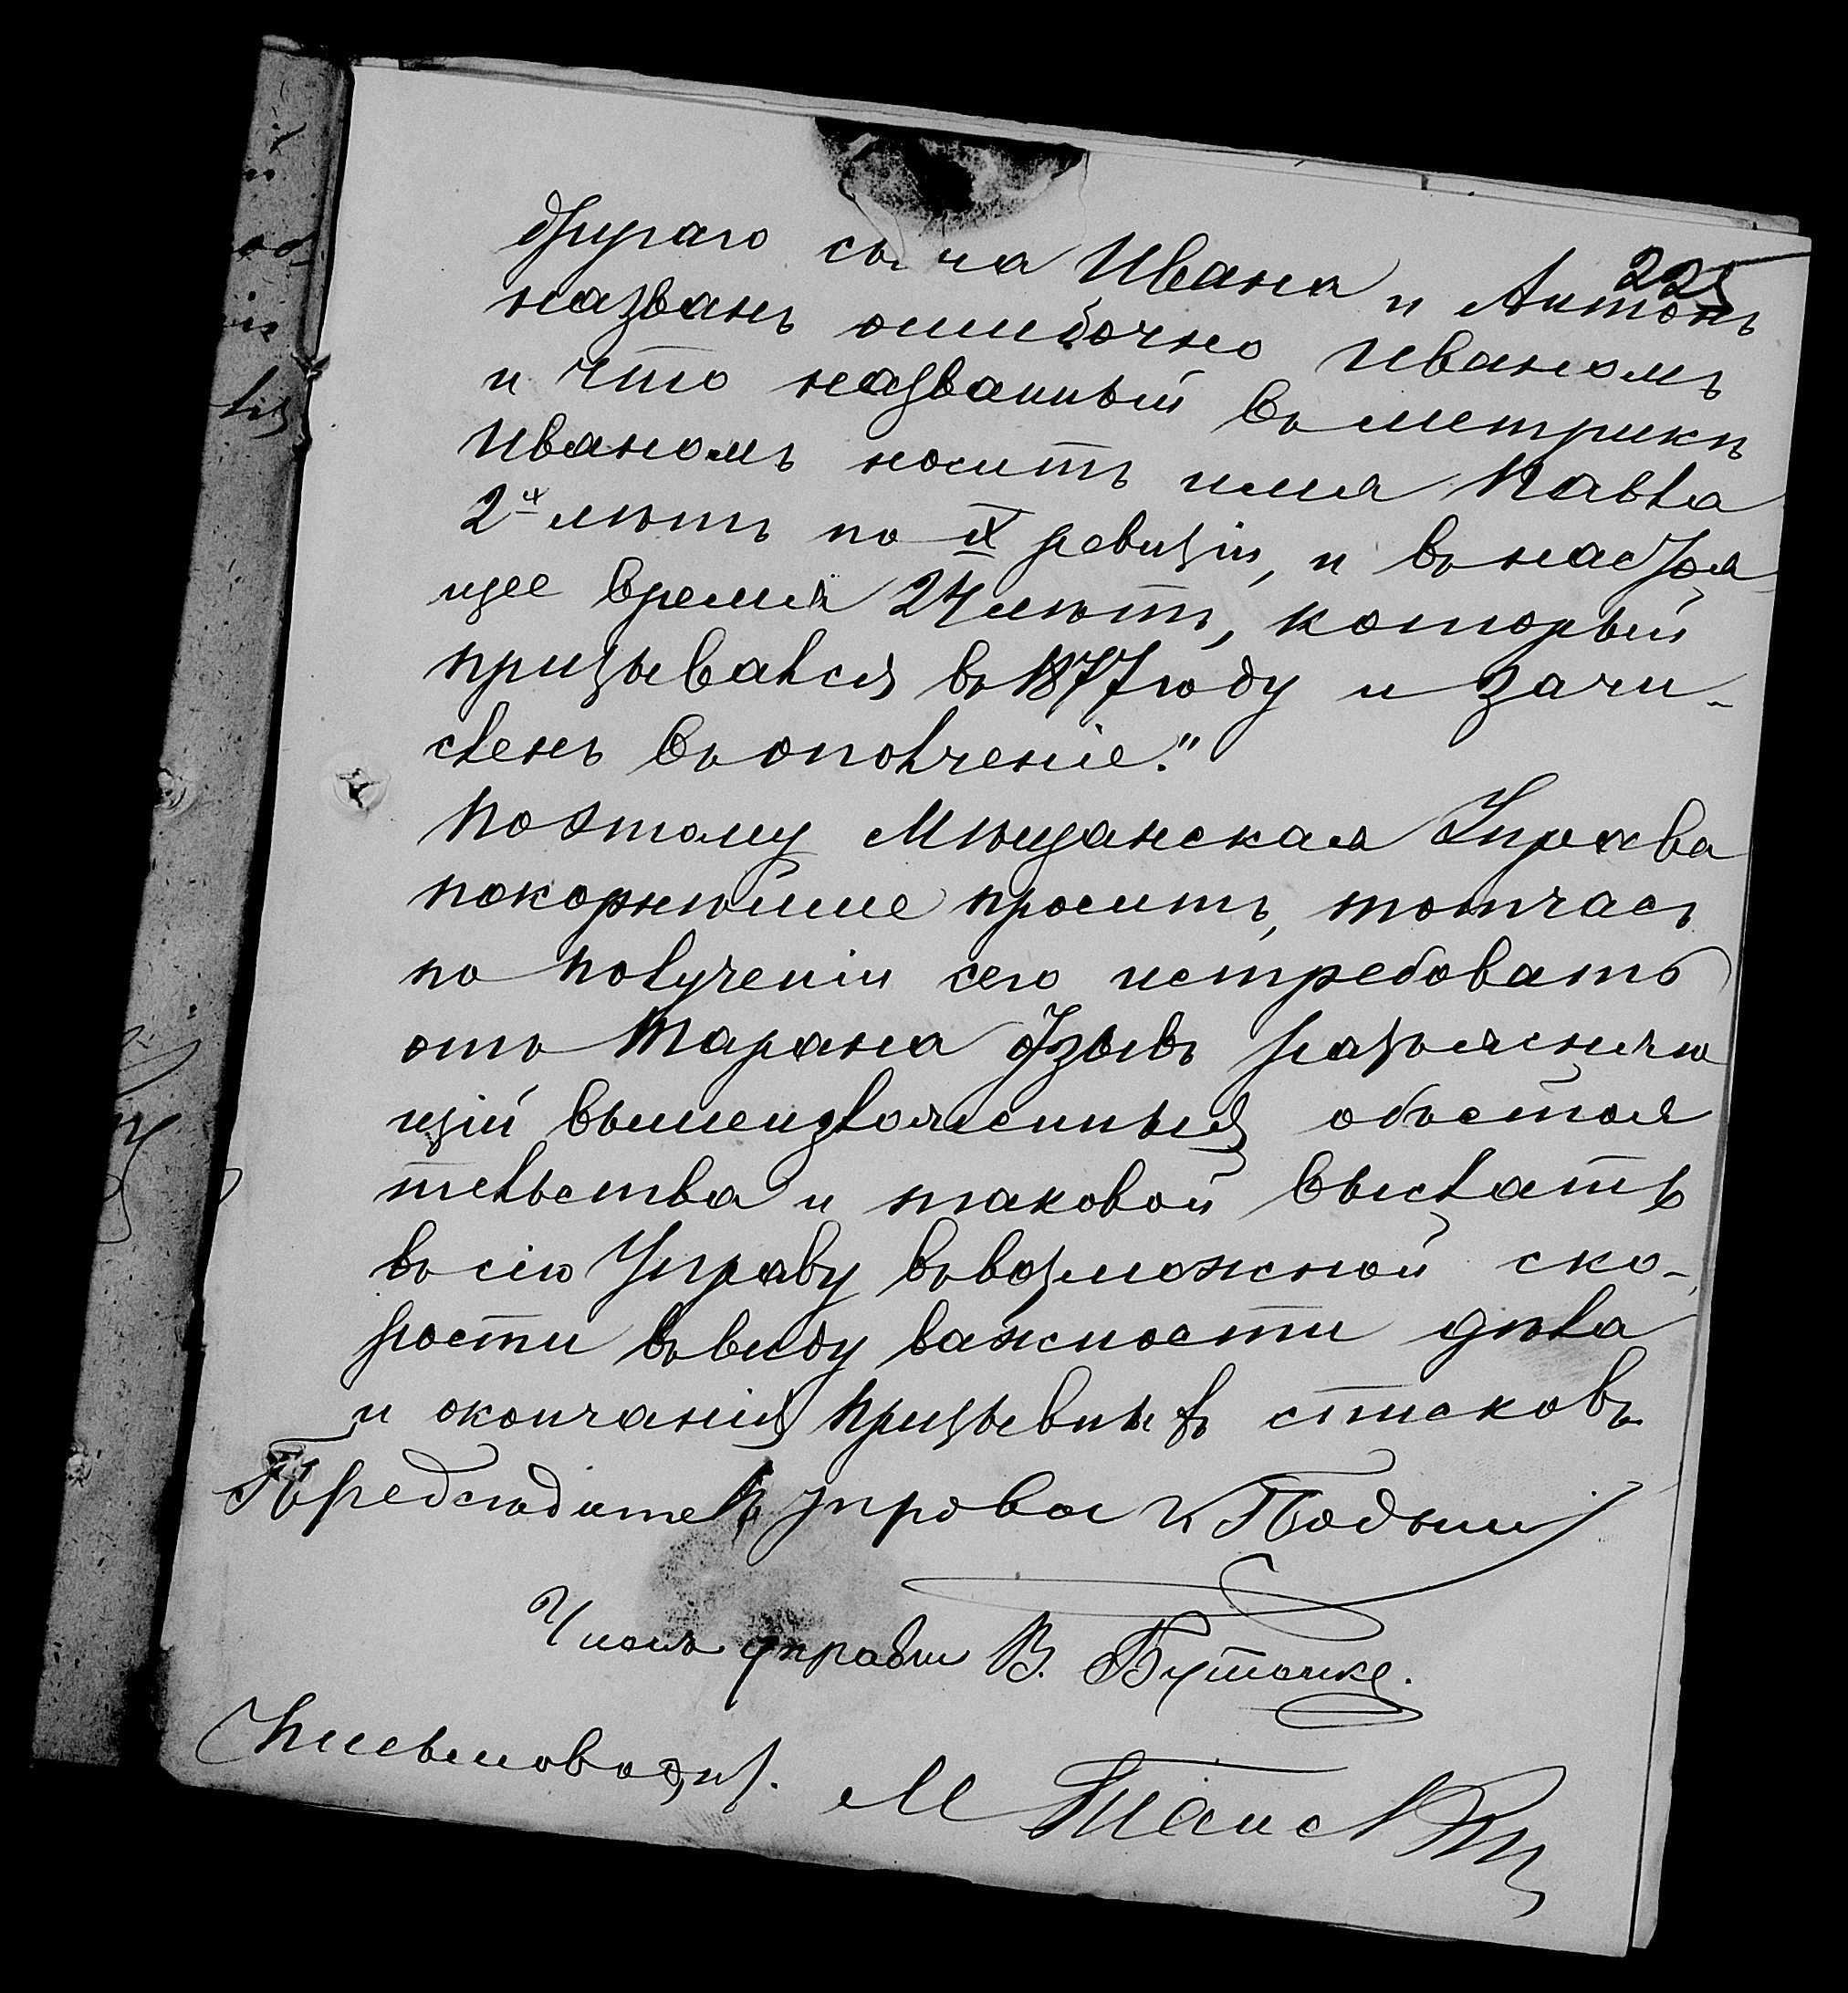 225
другаго сына Ивана и Антонъ
названъ ошибочно Иваномъ
и что названный въ метрикѣ
Иваномъ носитъ имя Павла
2хъ лѣтъ по IX ревизіи, и въ настоя-
щее время 24 лѣтъ, который
призывался въ 1877 году и зачи-
сленъ въ ополченіе."
Поэтому Мѣщанская Управа
покорнѣйше проситъ, тотчасъ
по полученіи сего истребовать
отъ Тарана отзывъ разъясняю
щій вышеизложенныя обстоя
тельства и таковой выслать
въ сію Управу въ возможной ско-
рости въ виду важности дѣла
и окончанія призывныхъ списковъ.
Предсѣдатель управы
Членъ управы В. Бутенко.
Письмоводит. М